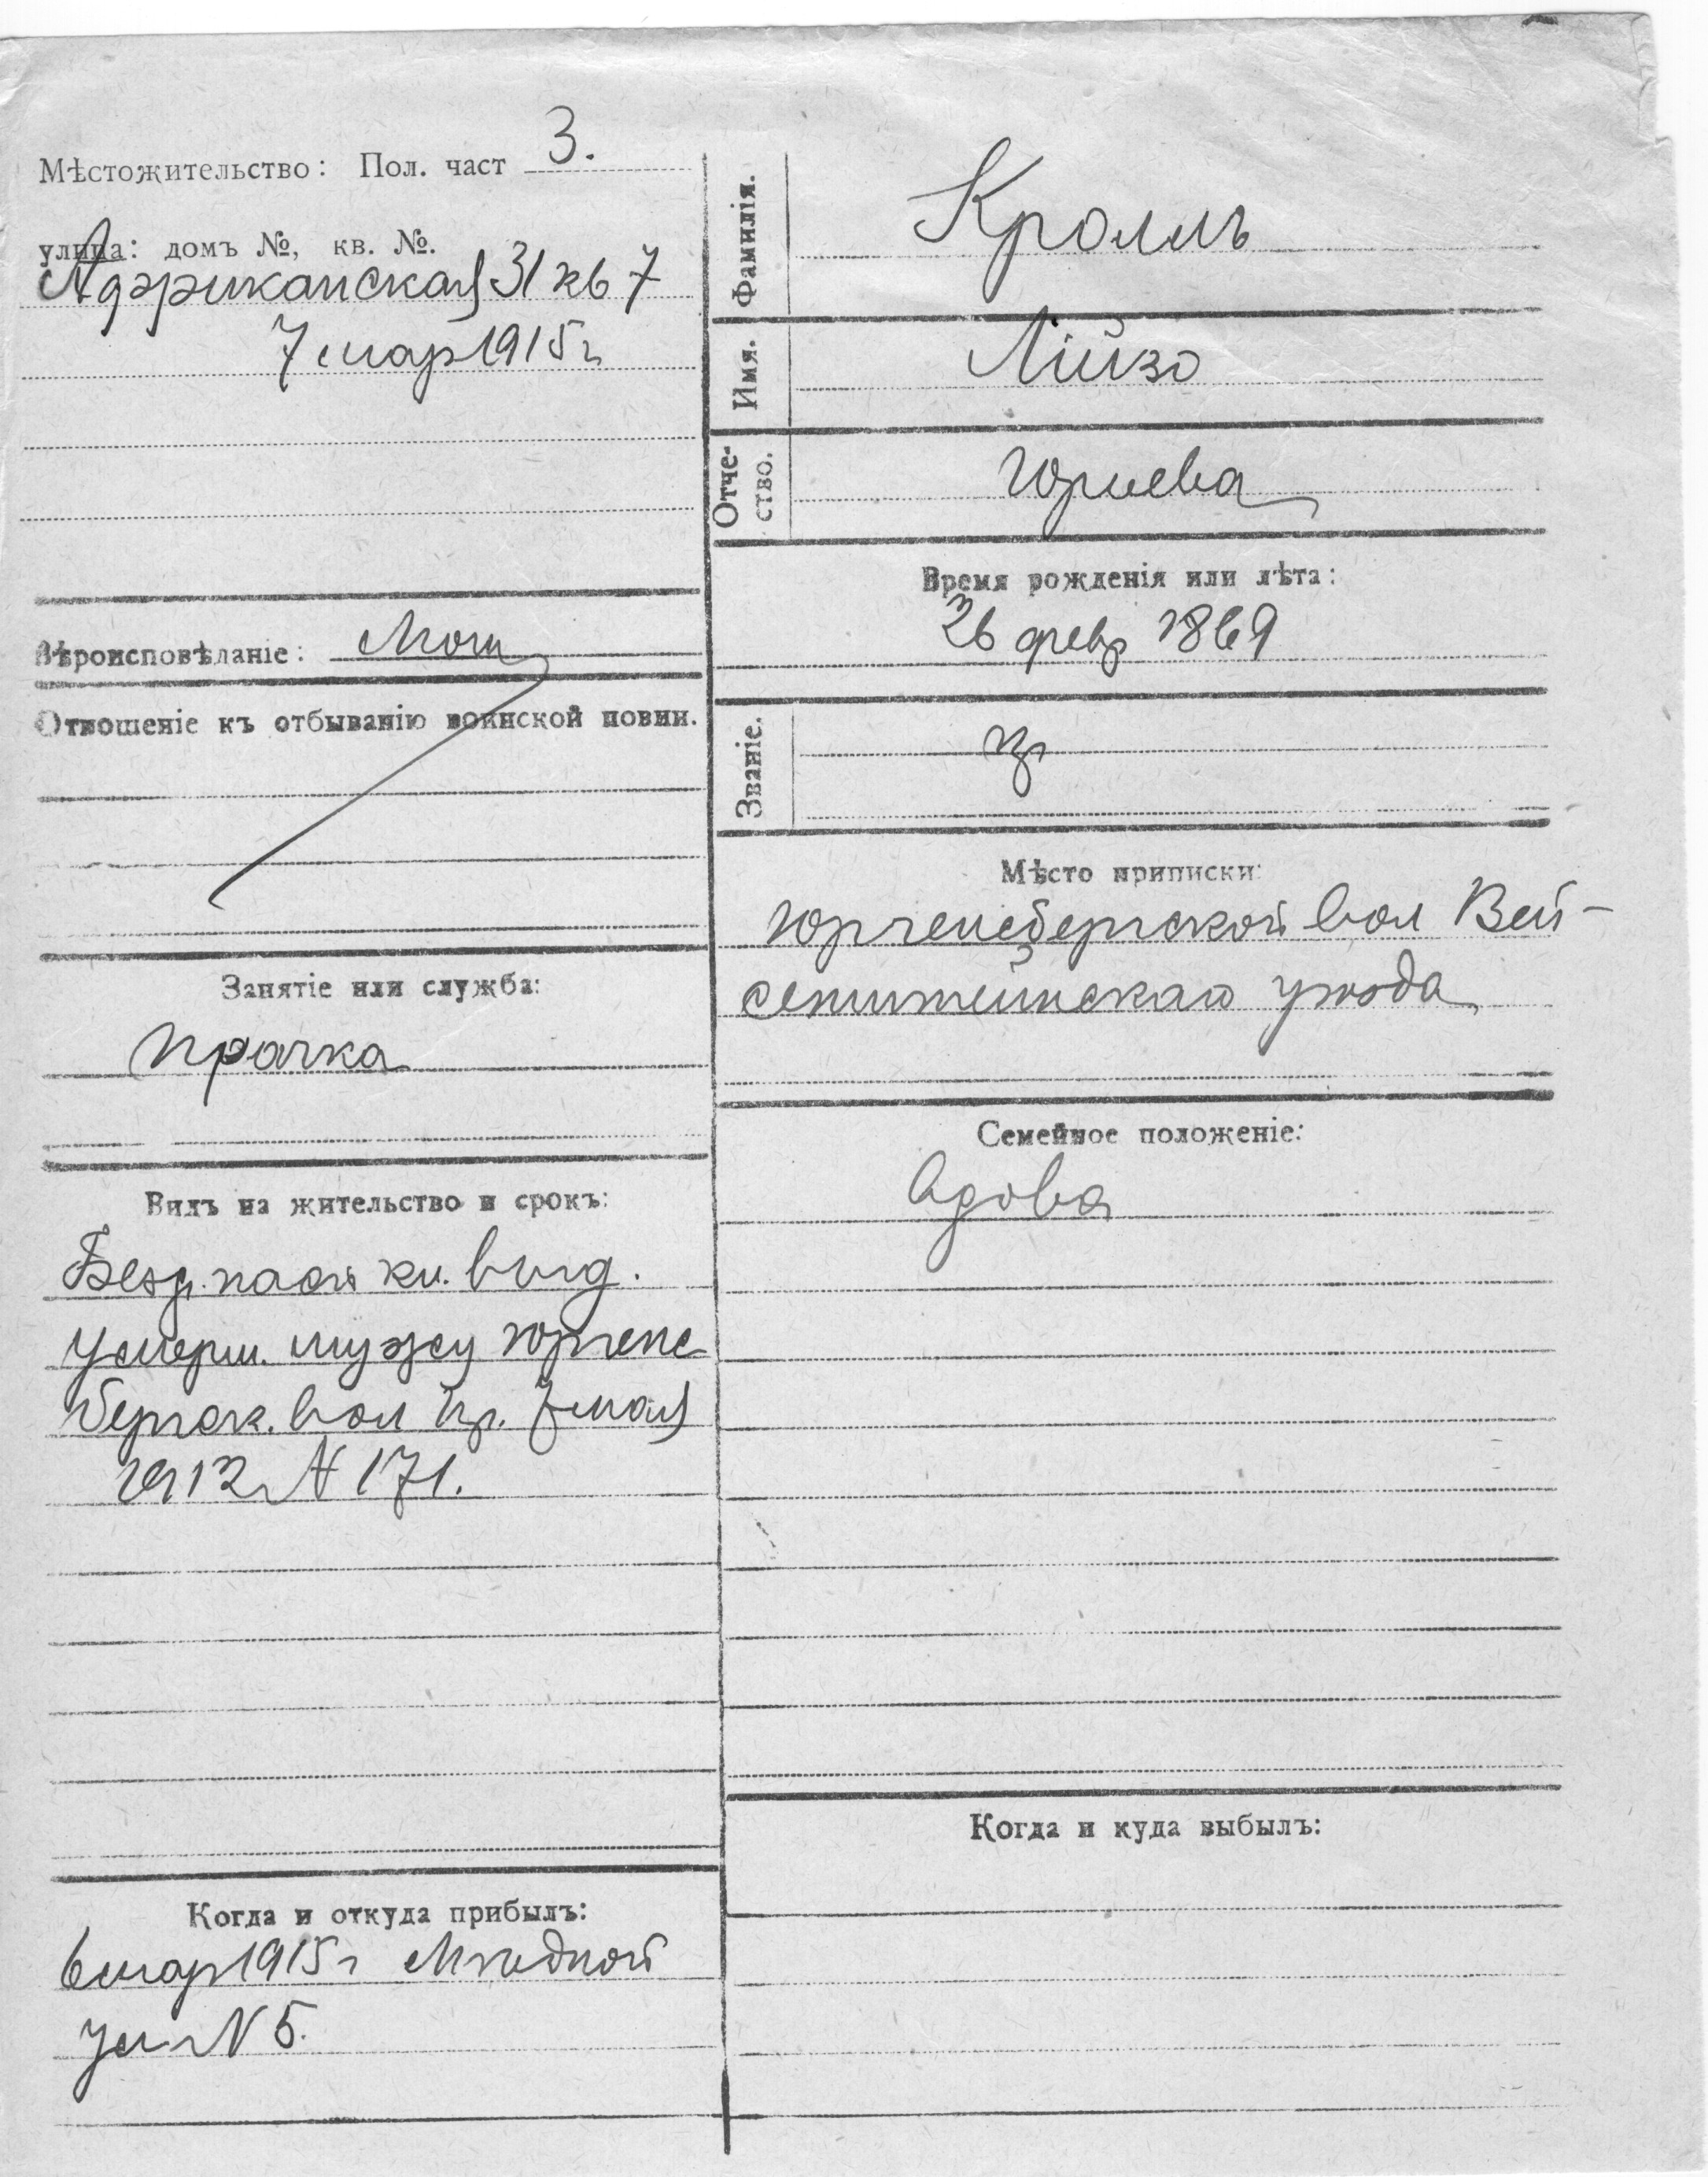 Мѣстожительство: Пол. част 3.
улица: домъ №, кв. №.
Африканская 31 кв 7
7 мар 1915 г
Вѣроисповѣданіе: Лют
Отношеніе къ отбыванію воинской повин.
Занятіе или служба:
Прачка
Видъ на жительство и срокъ:
Безср. пасп. кн. выд.
умерш. мужу Юргенс
бергск. вол пр. 7 мая
1912 г N 171.
Когда и откуда прибылъ:
6 мар 1915 г Мѣдной
ул N 5.
Фамилія.
Кролль
Имя.
Лійзо
Отче-
ство.
Юриева
Время рожденія или лѣта:
26 февр 1869
Званіе.
кр
Мѣсто приписки:
Юргенсбергской вол Вей-
сенштейнскаго уѣзда
Семейное положеніе:
Вдова
Когда и куда выбылъ: